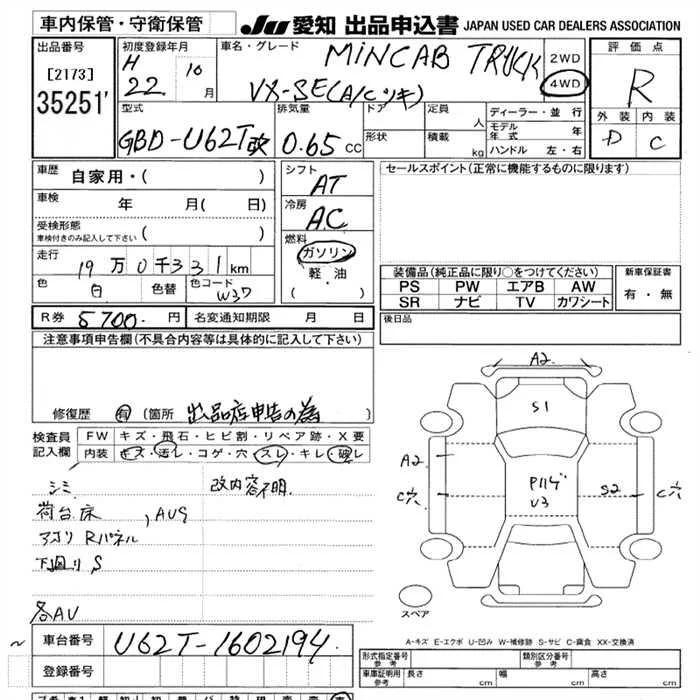 車内保管・守衛保管
JU 愛知 出品申込書 JAPAN USED CAR DEALERS ASSOCIATION
出品番号
[2173]
35251'
初度登録年月
H
22 10月
車名・グレード
MINCAB TRUCK
VX-SE(A/Cツキ)
2WD
4WD
評価点
R
外装 内装
D C
型式
GBD-U62T改
排気量
0.65 CC
ドア
形状
定員
人
積載
kg
ディーラー・並行
モデル年式 年
ハンドル 左・右
車歴 自家用・( )
車検 年 月( 日)
受検形態
車検付きのみ記入して下さい ( )
走行 19万0千331km
色 白 色替 色コード W37
シフト
AT
冷房
AC
燃料
ガソリン
軽・油
( )
セールスポイント(正常に機能するものに限ります)
装備品(純正品に限り○をつけてください)
PS PW エアB AW
SR ナビ TV カワシート
新車保証書
有・無
R券 5700- 円 名変通知期限 月 日
後日品
注意事項申告欄(不具合内容等は具体的に記入して下さい)
修復歴 有 (箇所 出品店申告の為 )
検査員記入欄
FW キズ・飛石・ヒビ割・リペア跡・X要
内装 キズ・汚レ・コゲ・穴・スレ・キレ・破レ
シミ 改内容不明
荷台床 , AUS
アオリ Rパネル
下廻り S
各AU
A2
S1
A2
C穴
S2
C穴
U3
スペア
A-キズ E-エクボ U-凹み W-補修跡 S-サビ C-腐食 XX-交換済
車台番号 U62T-1602194
登録番号
形式指定番号 参考
類別区分番号 参考
車庫証明用 参考 長さ cm 幅 cm 高さ cm